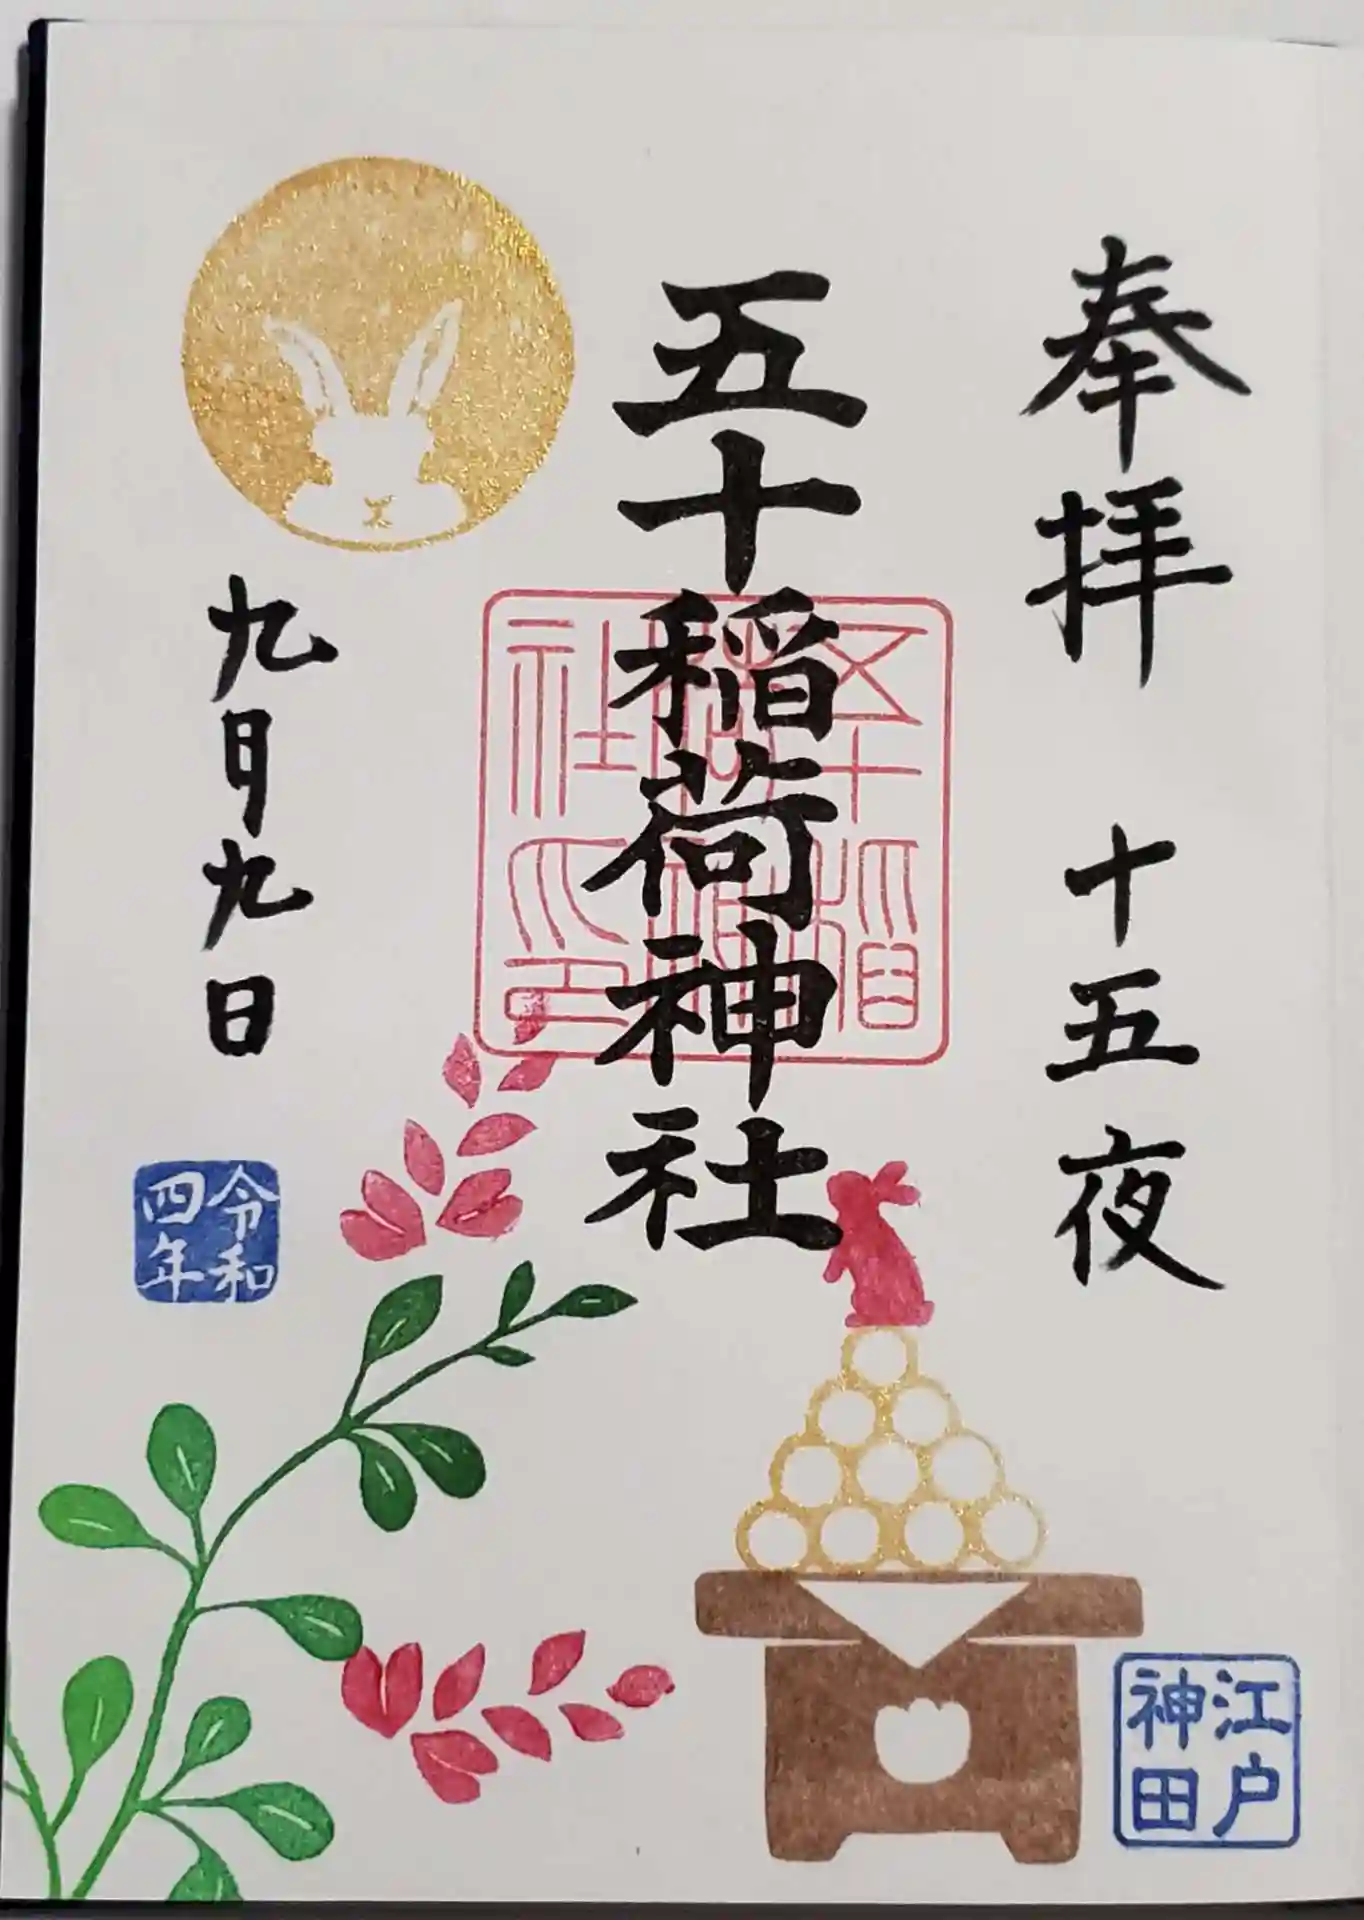 奉拝 十五夜
江戸神田
五十稲荷神社
五十稲荷神社之印
九月九日
令和四年